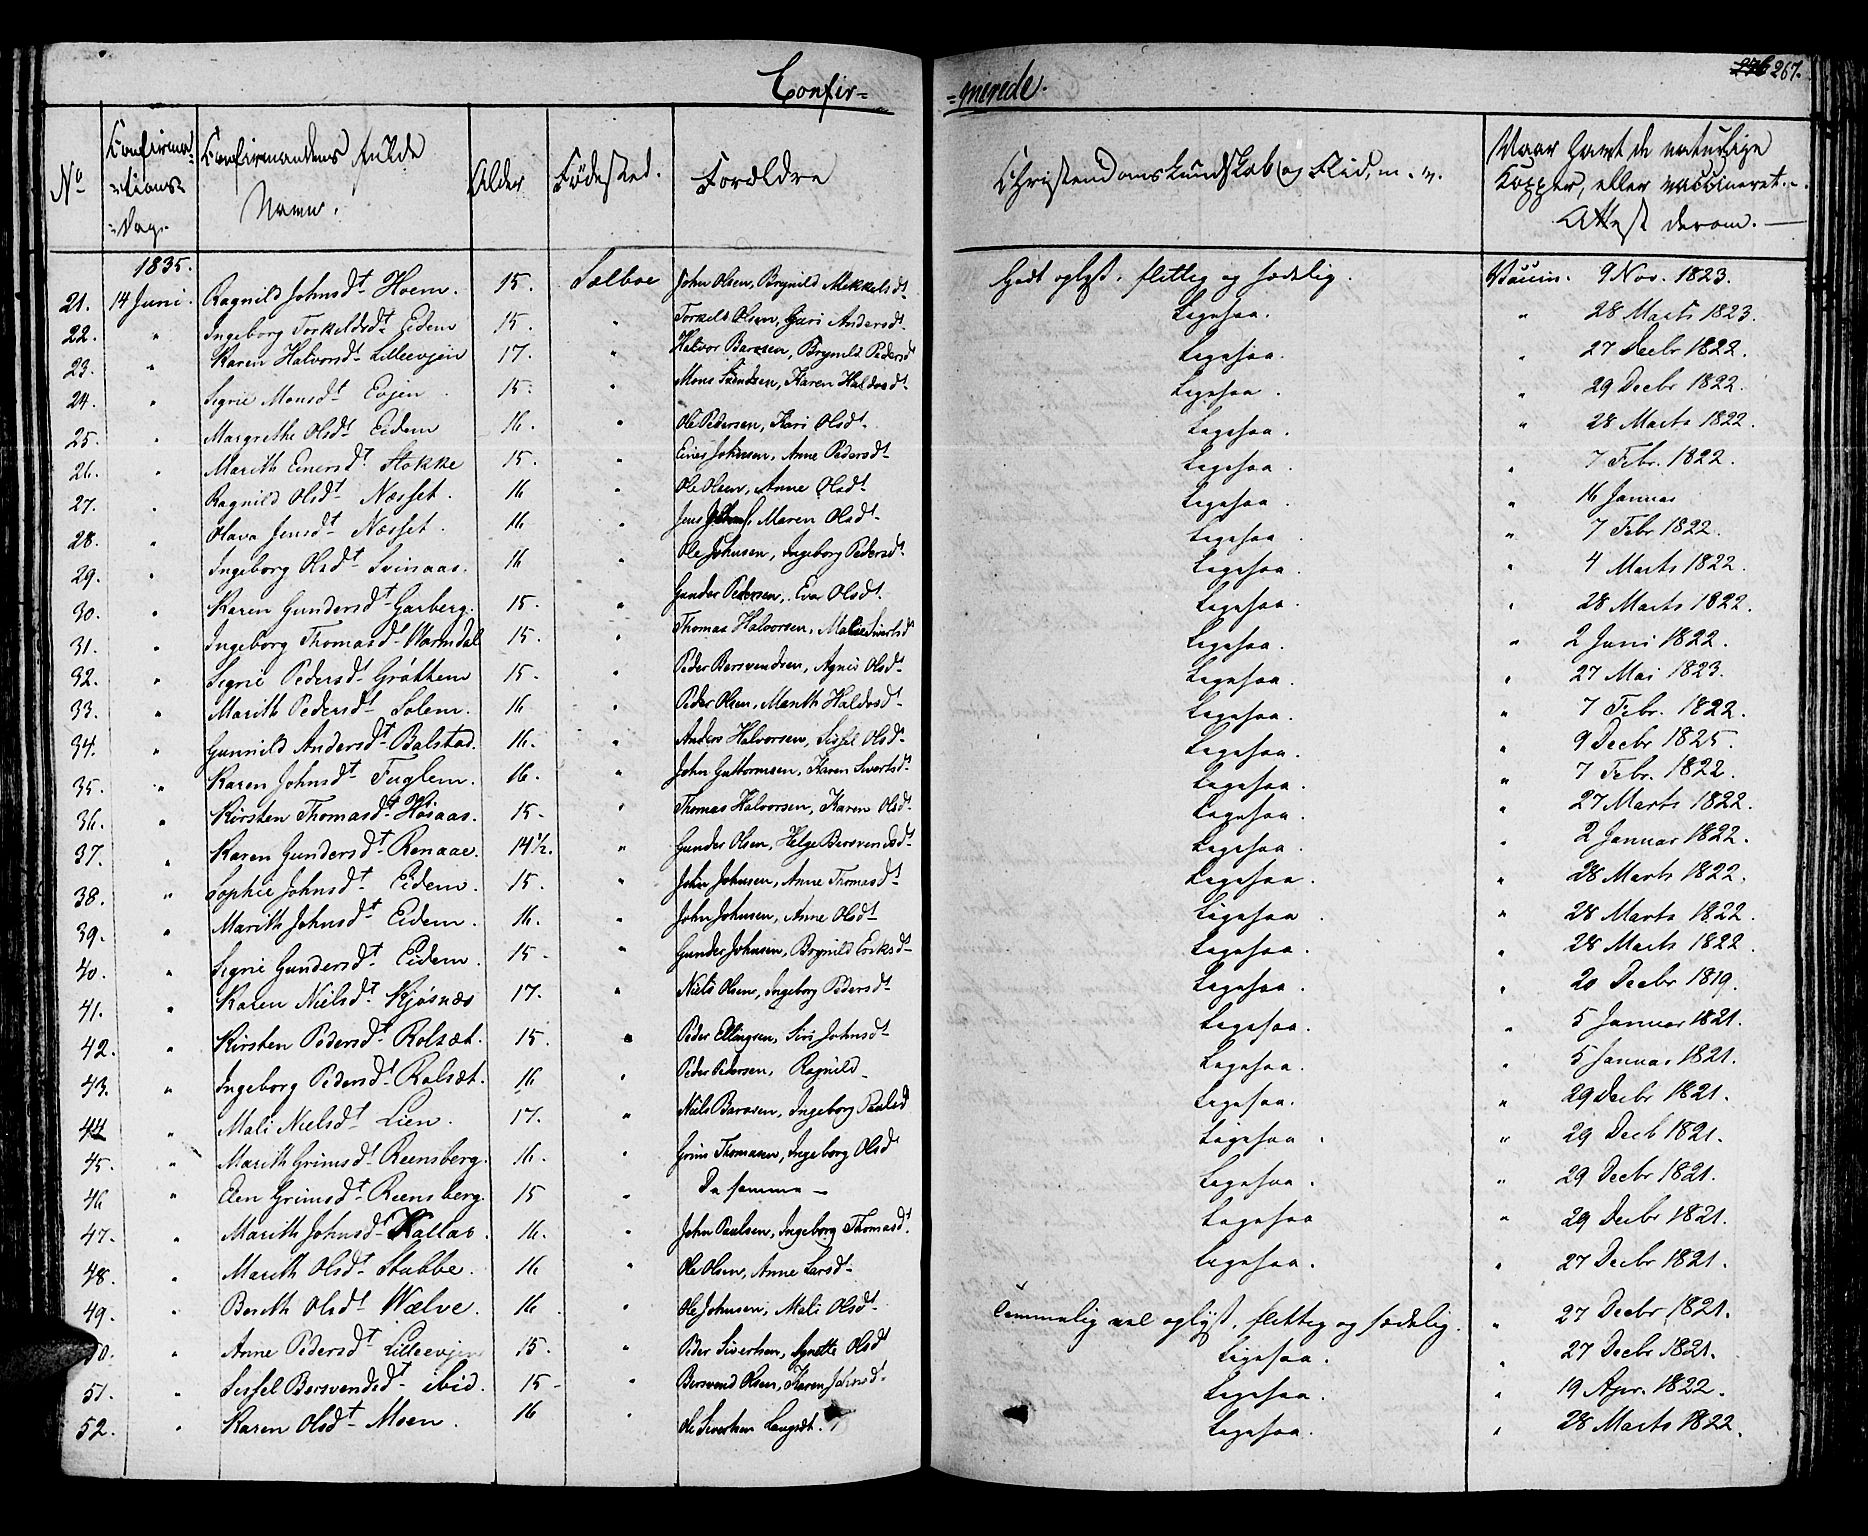 Confir=
=merede.
276 267.
No
Confirma=
=tions=
=Dag.
Confirmandens fulde
Navn.
Alder
Fødested.
Forældre
Christendomskundskab og Flid, m. v.
Naar havt de naturlige
Kopper, eller vaccineret.
Attest derom.
1835.
21. 14 Juni. Ragnild Johnsdt Hoem. 15. Sælboe John Olsen, Brynild Mikkelsdt Godt oplyst, flittig og sædelig. Vaccin. 9 Nov. 1823.
22. " Ingeborg Torkeldsdt Eidem 15. " Torkeld Olsen, Guri Andersdt Ligesaa. " 28 Marts 1823.
23. " Karen Halvorsdt Lilleevjen 17. " Halvor Barosen, Brynild Pedersdt Ligesaa. " 27 Decbr 1822.
24. " Sigrie Monsdt Evjen 15. " Mons Svendsen, Karen Haldosdt Ligesaa. " 29 Decbr 1822.
25. " Margrethe Olsdt Eidem 16. " Ole Pedersen, Kari Olsdt Ligesaa. " 28 Marts 1822.
26. " Marith Einersdt Stokke 15. " Einer Johnsen, Anne Pedersdt Ligesaa. " 7 Febr. 1822.
27. " Ragnild Olsdt Næsset. 16 " Ole Olsen, Anne Olsdt Ligesaa. " 16 Januar
28. " Olava Jensdt Næsset. 16 " Jens Johns, Maren Olsdt Ligesaa. " 7 Febr 1822.
29. " Ingeborg Olsdt Svinaas. 16 " Ole Johnsen, Ingeborg Pedersdt Ligesaa. " 4 Marts 1822.
30. " Karen Gundersdt Garberg. 15. " Gunder Pedersen, Eva Olsdt Ligesaa. " 28 Marts 1822.
31. " Ingeborg Thomasdt Warmdal 15. " Thomas Halvorsen, Malie Sivertsd Ligesaa. " 2 Juni 1822.
32. " Sigrie Pedersdt Grøthem 15. " Peder Bersvendsen, Agnis Olsdt Ligesaa. " 27 Mai 1823.
33. " Marith Pedersdt Solem. 16 " Peder Olsen, Marith Haldosdt Ligesaa. " 7 Febr. 1822.
34. " Gunnild Andersdt Balstad. 16. " Anders Halvorsen, Sissel Olsdt Ligesaa. " 9 Decbr 1825.
35. " Karen Johnsdt Fuglem. 16. " John Guttormsen, Karen Sivertsdt Ligesaa. " 7 Febr. 1822.
36. " Kirsten Thomasdt Høiaas. 15. " Thomas Halvorsen, Karen Olsdt Ligesaa. " 27 Marts 1822.
37. " Karen Gundersdt Renaae. 14½. " Gunder Olsen, Helge Bersvendsdt Ligesaa. " 2 Januar 1822.
38. " Sophie Johnsdt Eidem. 15. " John Johnsen, Anne Thomasdt Ligesaa. " 28 Marts 1822.
39. " Marith Johnsdt Eidem. 16. " John Johnsen, Anne Olsdt Ligesaa. " 28 Marts 1822.
40. " Sigrie Gundersdt Eidem. 15 " Gunder Johnsen, Brynild Eriksdt Ligesaa. " 28 Marts 1822.
41. " Karen Nielsdt Kjøsnæs 17. " Niels Olsen, Ingeborg Pedersdt Ligesaa. " 20 Decbr 1819.
42. " Kirsten Pedersdt Rolsæt. 15. " Peder Ellingsen, Siri Johnsdt Ligesaa. " 5 Januar 1821.
43. " Ingeborg Pedersdt Rolsæt. 16 " Peder Pedersen, Ragnild Ligesaa. " 5 Januar 1821.
44 " Mali Nielsdt Lien. 17. " Niels Barosen, Ingeborg Paulsd Ligesaa. " 29 Decbr 1821.
45. " Marith Grimsdt Reensberg. 16. " Grim Thomasen, Ingeborg Olsd Ligesaa. " 29 Decb 1821.
46 " Elen Grimsdt Reensberg. 15 " De samme Ligesaa. " 29 Decbr 1821.
47. " Marith Johnsdt Kallar. 16. " John Paulsen, Ingeborg Thomasdt. Ligesaa " 29 Decbr 1821.
48. " Marith Olsdt Stubbe. 16 " Ole Olsen, Anne Larsdt Ligesaa. " 27 Decbr 1821.
49. " Berith Olsdt Wælve. 16 " Ole Johnsen, Mali Olsdt Temmelig vel oplyst, flittig og sædelig. " 27 Decbr 1821.
50. " Anne Pedersdt Lilleevjen 15. " Peder Sivertsen, Agnette Olsd Ligesaa. " 27 Decbr 1821.
51. " Sissel Bersvendsdt ibid. 15 " Bersvend Olsen, Karen Johnsdt Ligesaa. " 19 Apr. 1822.
52. " Karen Olsdt Moen. 16 " Ole Sivertsen Langsæt. Ligesaa. " 28 Marts 1822.